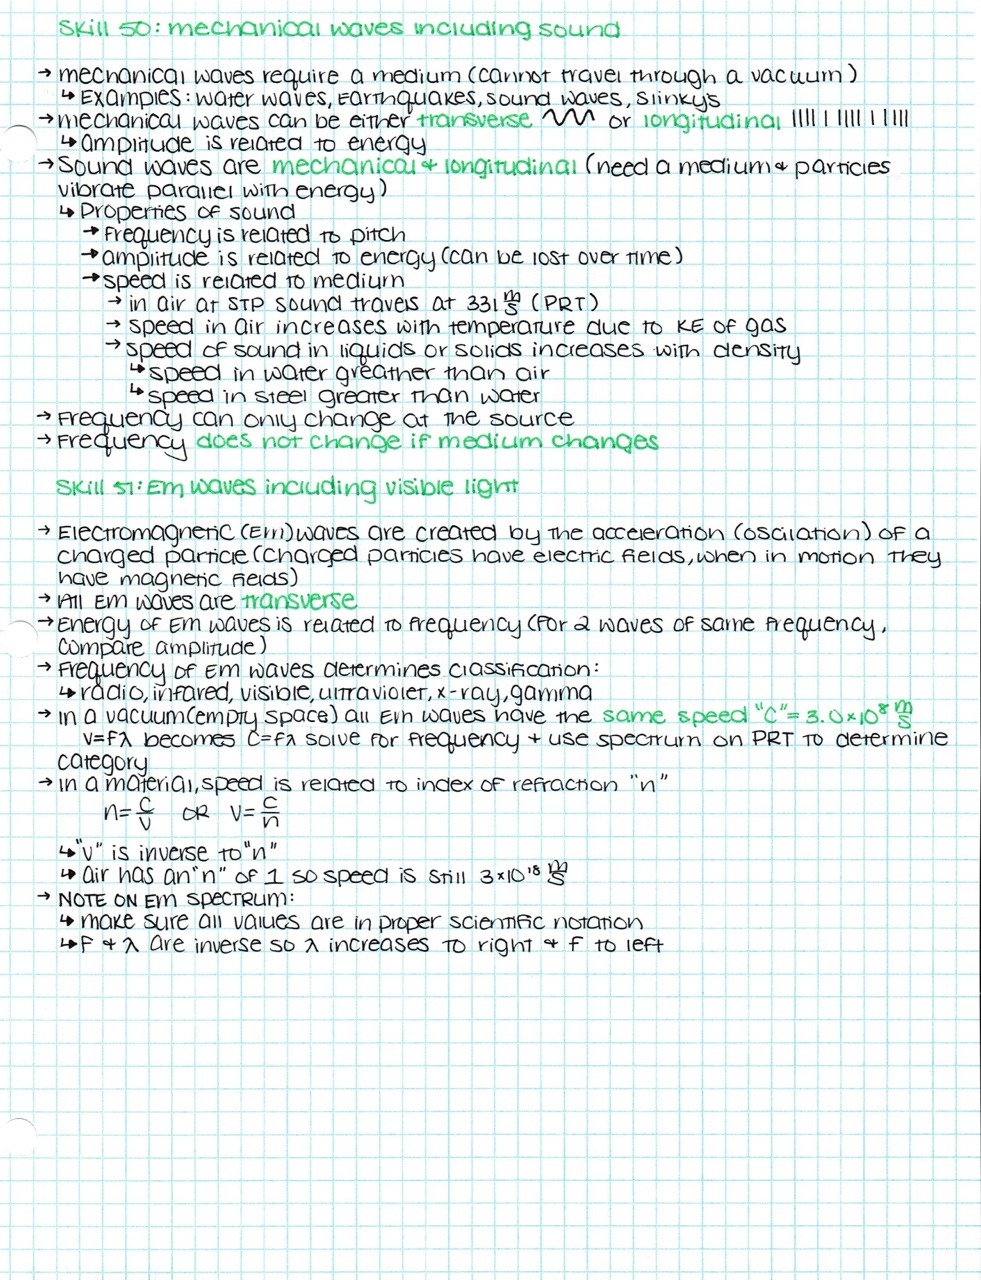 Skill 50: mechanical waves including sound
→ mechanical waves require a medium (cannot travel through a vacuum)
↳ Examples: water waves, Earthquakes, sound waves, slinkys
→ mechanical waves can be either transverse or longitudinal
↳ amplitude is related to energy
→ Sound waves are mechanical + longitudinal (need a medium + particles
vibrate parallel with energy)
↳ Properties of sound
→ frequency is related to pitch
→ amplitude is related to energy (can be lost over time)
→ speed is related to medium
→ in air at STP sound travels at 331 m/s (PRT)
→ speed in air increases with temperature due to KE of gas
→ speed of sound in liquids or solids increases with density
↳ speed in water greather than air
↳ speed in steel greater than water
→ Frequency can only change at the source
→ Frequency does not change if medium changes
Skill 51: Em waves including visible light
→ Electromagnetic (Em) waves are created by the acceleration (oscilation) of a
charged particle (charged particles have electric fields, when in motion they
have magnetic fields)
→ All Em waves are transverse
→ Energy of Em waves is related to frequency (for 2 waves of same frequency,
compare amplitude)
→ Frequency of Em waves determines classification:
↳ radio, infared, visible, ultraviolet, x-ray, gamma
→ in a vacuum (empty space) all Em waves have the same speed "C" = 3.0×10⁸ m/s
v=fλ becomes C=fλ solve for frequency + use spectrum on PRT to determine
category
→ in a material, speed is related to index of refraction "n"
n= c/v OR v= c/n
↳ "v" is inverse to "n"
↳ air has an "n" of 1 so speed is still 3×10¹⁸ m/s
→ NOTE ON Em SPECTRUM:
↳ make sure all values are in proper scientific notation
↳ F + λ are inverse so λ increases to right + f to left